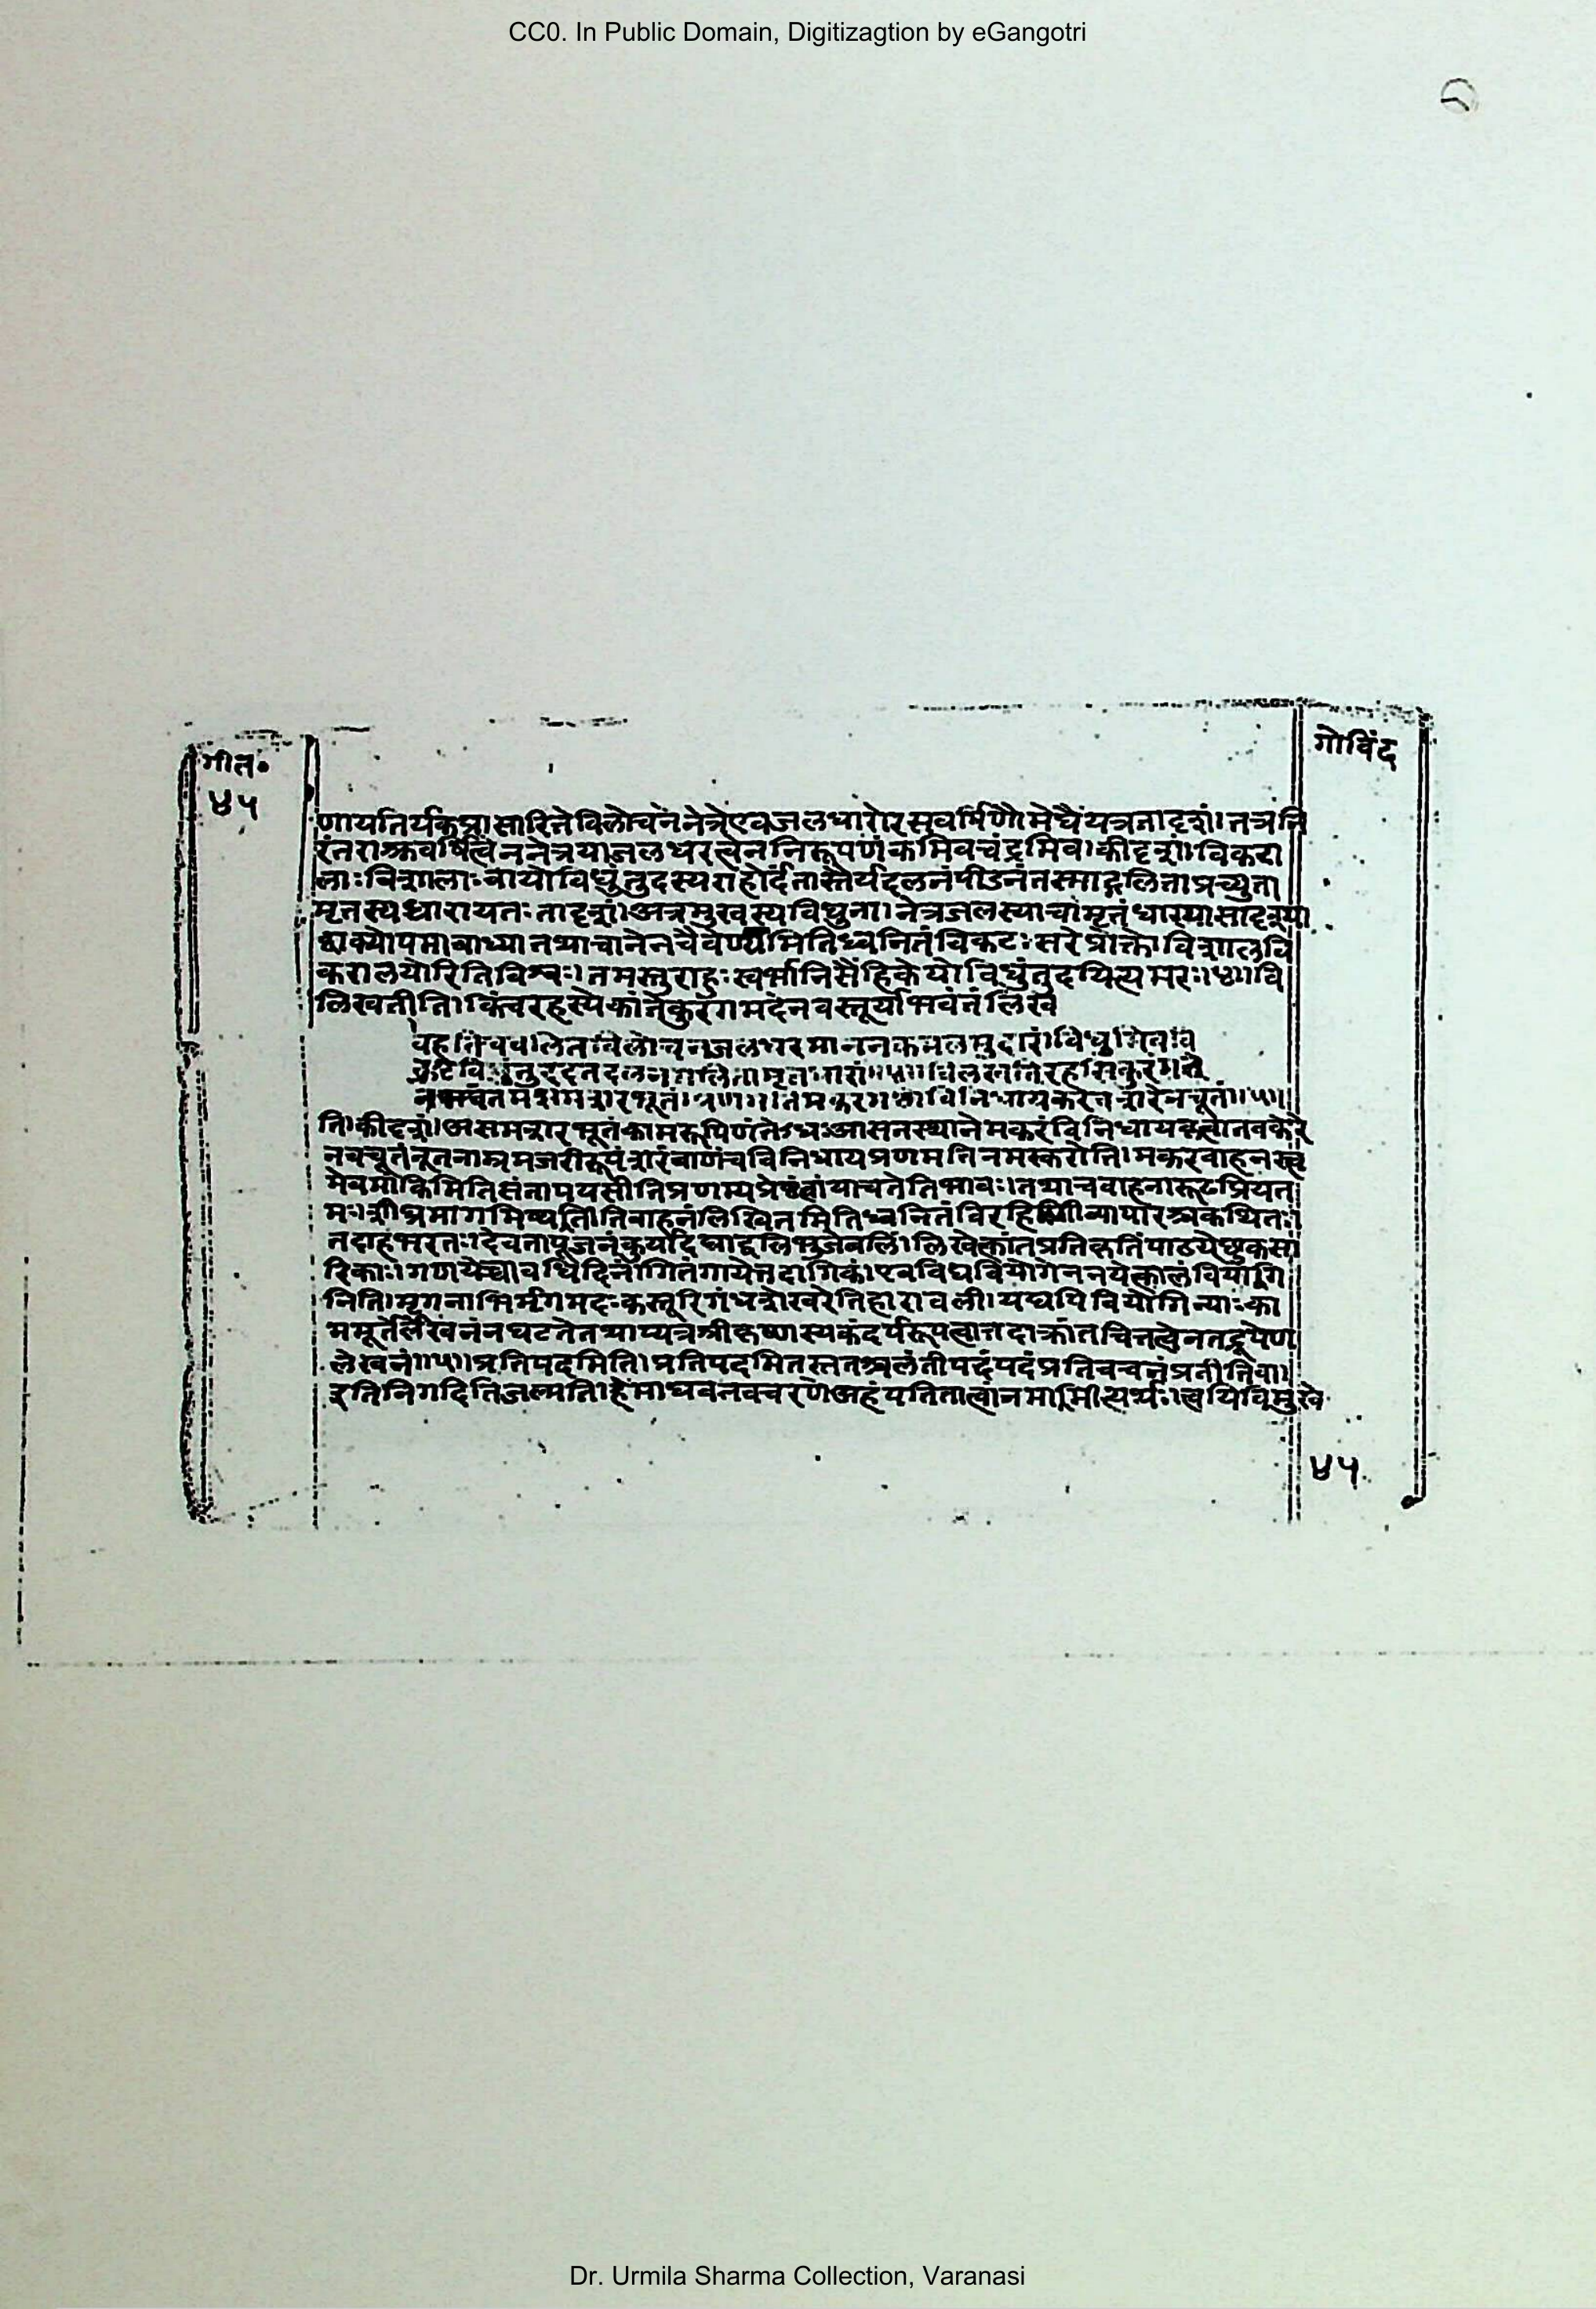 CC0. In Public Domain, Digitizagtion by eGangotri
गीत॰
गोविंद
४५
णायतिर्यक्प्रसारितेविलोचनेनेत्रेएवजलधारोरसवर्षिणौमेघौयत्रतादृशं।तत्रनि
रंतराश्रुवर्षित्वेननेत्रयोर्जलधरत्वेननिरूपणंकमिवचंद्रमिव।कीदृशं।विकरा
लाःविशालाःवायोविधुंतुदस्यराहोर्दंतास्तैर्यद्दलनंपीडनंतस्माद्गलिताप्रच्युता
मृतस्यधारायतःतादृशं।अत्रमुखस्यविधुना।नेत्रजलस्याचामृतधारयासादृश्या
करालयोरितिविश्वः।तमस्तुराहुःस्वर्भानिसैंहिकेयोविधुंतुदयित्यमरः॥४॥वि
लिखतीति।किंचरहस्येकांतेकुरंगमदेनवस्तूर्याभवंतंलिखं
वहतिचवलितविलोचनजलधरमाननकमलमुदारं।विधुमिववि
कटविधुंतुददंतदलनगलितामृतधारां॥४॥विलिखतिरहसिकुरंगमे
नभवंतमसमशरभूतं।प्रण॰॥तिमकरमधोविनिधायकरेचशरंनवचूतं॥५॥
ति।कीदृशं।असमशरभूतंकामरूपिणंतेऽधःआसनस्थानेमकरंविनिधायकृत्वानवकरे
नवचूतंनूतनाम्रमंजरीरूपंशरंबाणंचविनिधायप्रणमतिनमस्करोति।मकरवाहनस्त्व
मेवमांकिमितिसंतापयसीतिप्रणम्यप्रेष्ठंत्वांयाचतेतिभावः।तथाचवाहनारूढप्रियत
मःशीघ्रमागमिष्यतीतिवाहनंलिखितमितिध्वनितंविरहिणीव्यापारश्चकथितः।
तदाहभरतः।देवतापूजनंकुर्याद्दिघाद्बलिभुजेबलिं।लिखेत्कांतप्रतिकृतिंपाठयेछुकसा
रिकाः।गणयेच्चावधिदिनंगीतंगायेत्तदांगिकं।एवंविधवियोगेननयेत्कालंवियोगि
नीति।मृगनाभिर्मृगमदःकस्तूरिगंधशेखरेतिहारावली।यद्यपिवियोगिन्याःका
ममूर्तेर्लेखनंनघटतेतथाप्यत्रश्रीकृष्णस्यकंदर्परूपत्वात्तदाक्रांतचित्तत्वेनतद्रूपेण
लेखनं॥५॥प्रतिपदमिति।प्रतिपदमितस्ततश्चलंतीपदंपदंप्रतिवचनंप्रतीतिवा।
इतिनिगदितिजल्पति।हेमाधवतवचरणेअहंपतितात्वांनमामीत्यर्थः।त्वयिविमुखे
४५
Dr. Urmila Sharma Collection, Varanasi